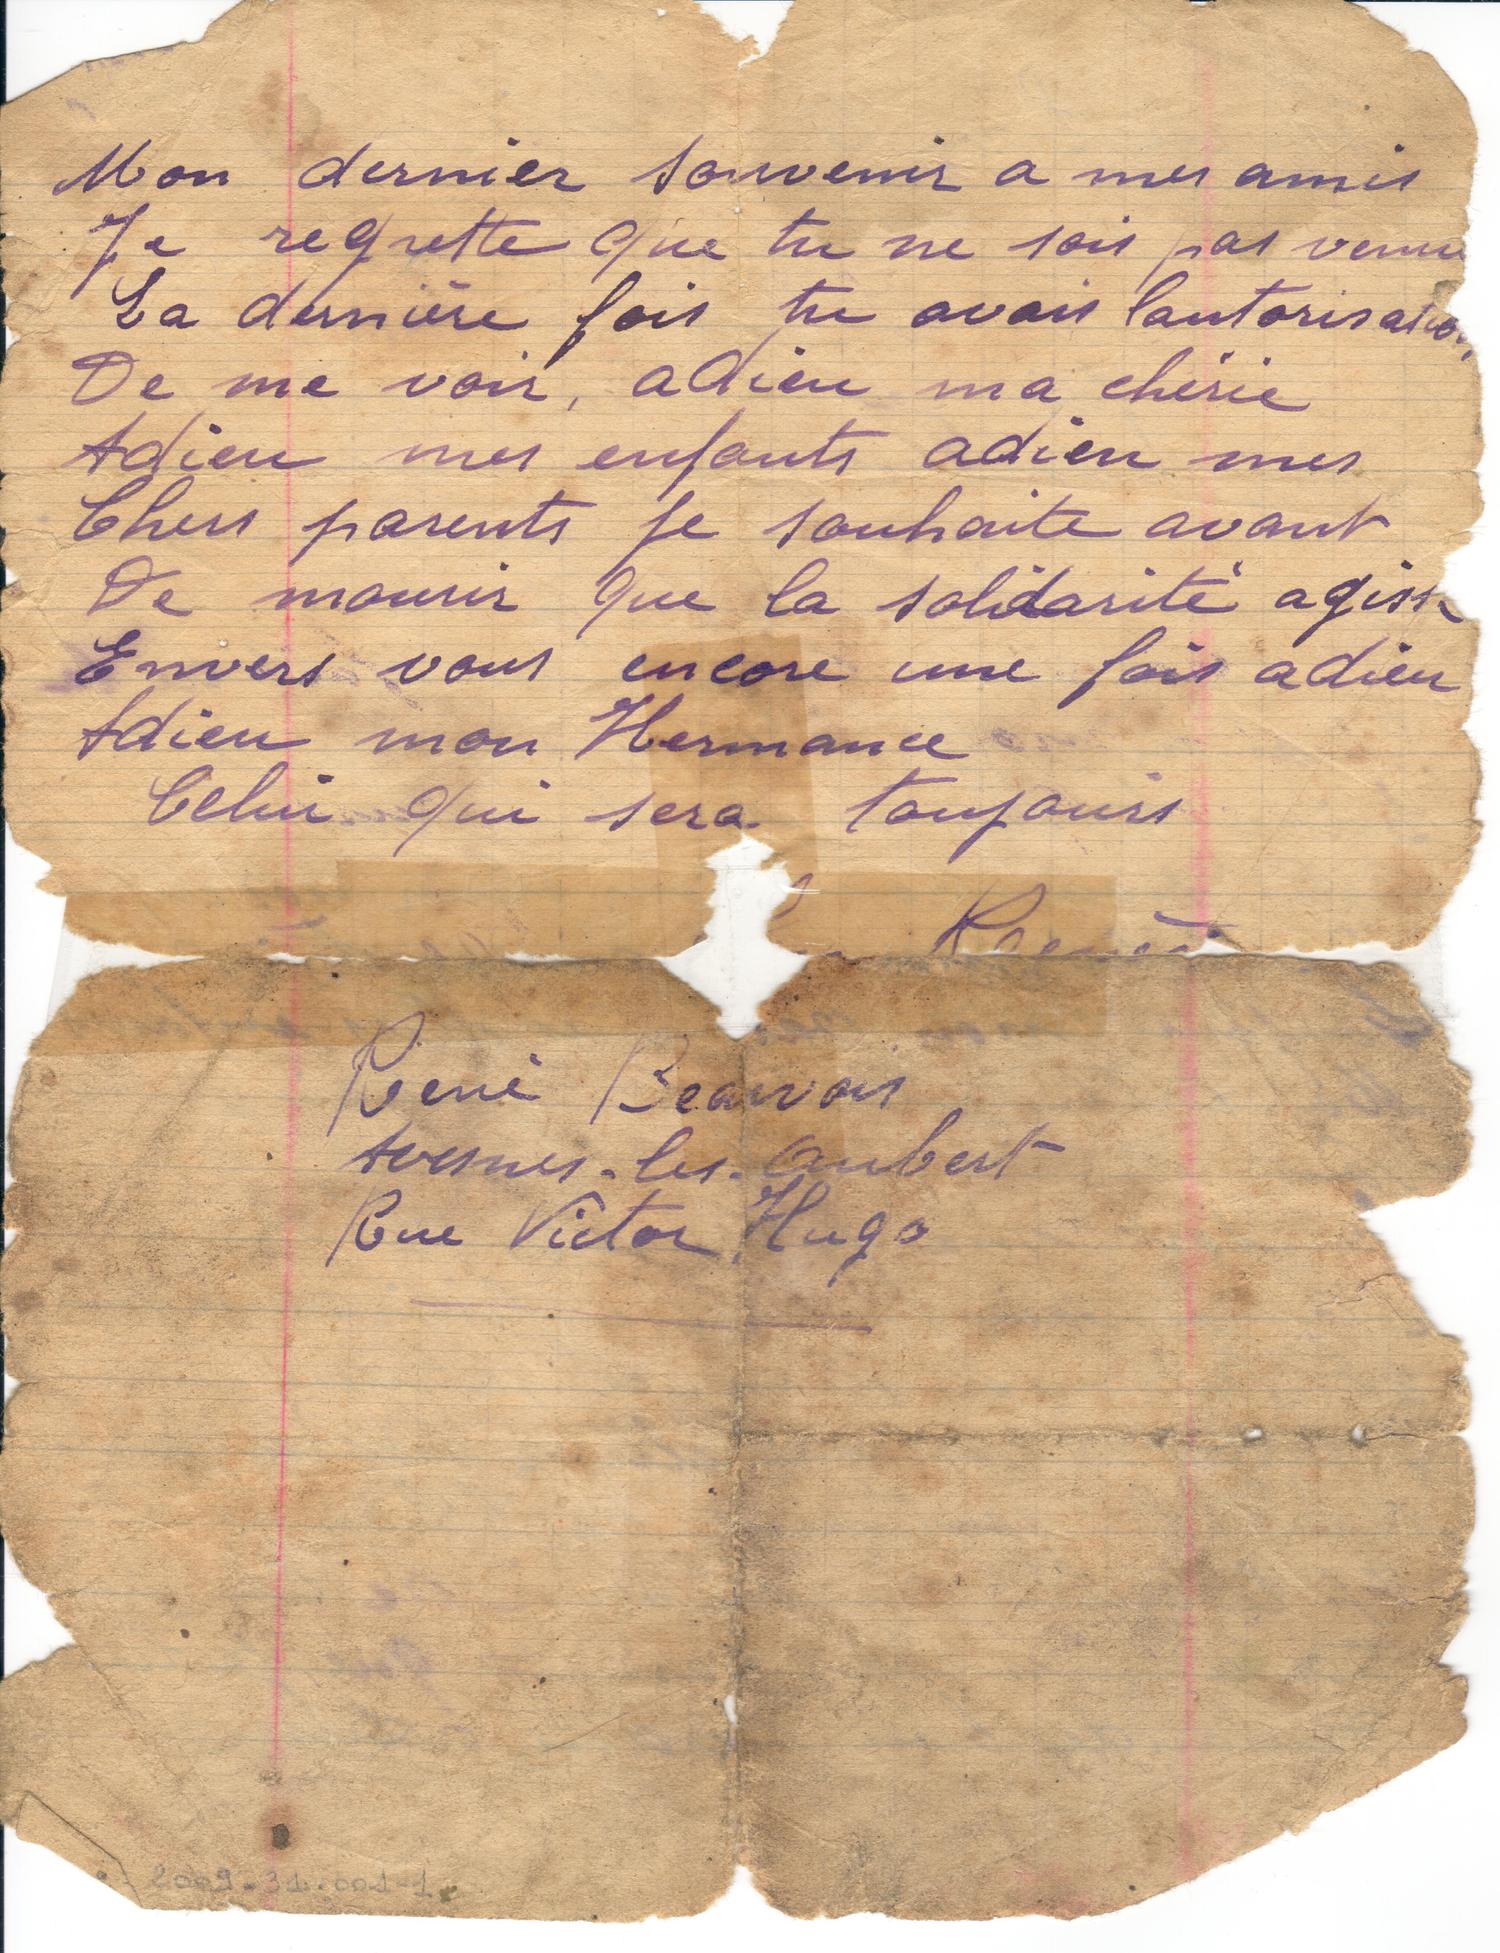 Mon dernier souvenir a mes amis
Je regrette que tu ne sois pas venue
La dernière fois tu avais lautorisation
De me voir, adieu ma chérie
Adieu mes enfants adieu mes
Chers parents je souhaite avant
De mourir que la solidarité agisse
Envers vous encore une fois adieu
Adieu mon Hermance
Celui qui sera toujours
René Beauvois
Avesnes-les-Aubert
Rue Victor Hugo
2009-31.001-1